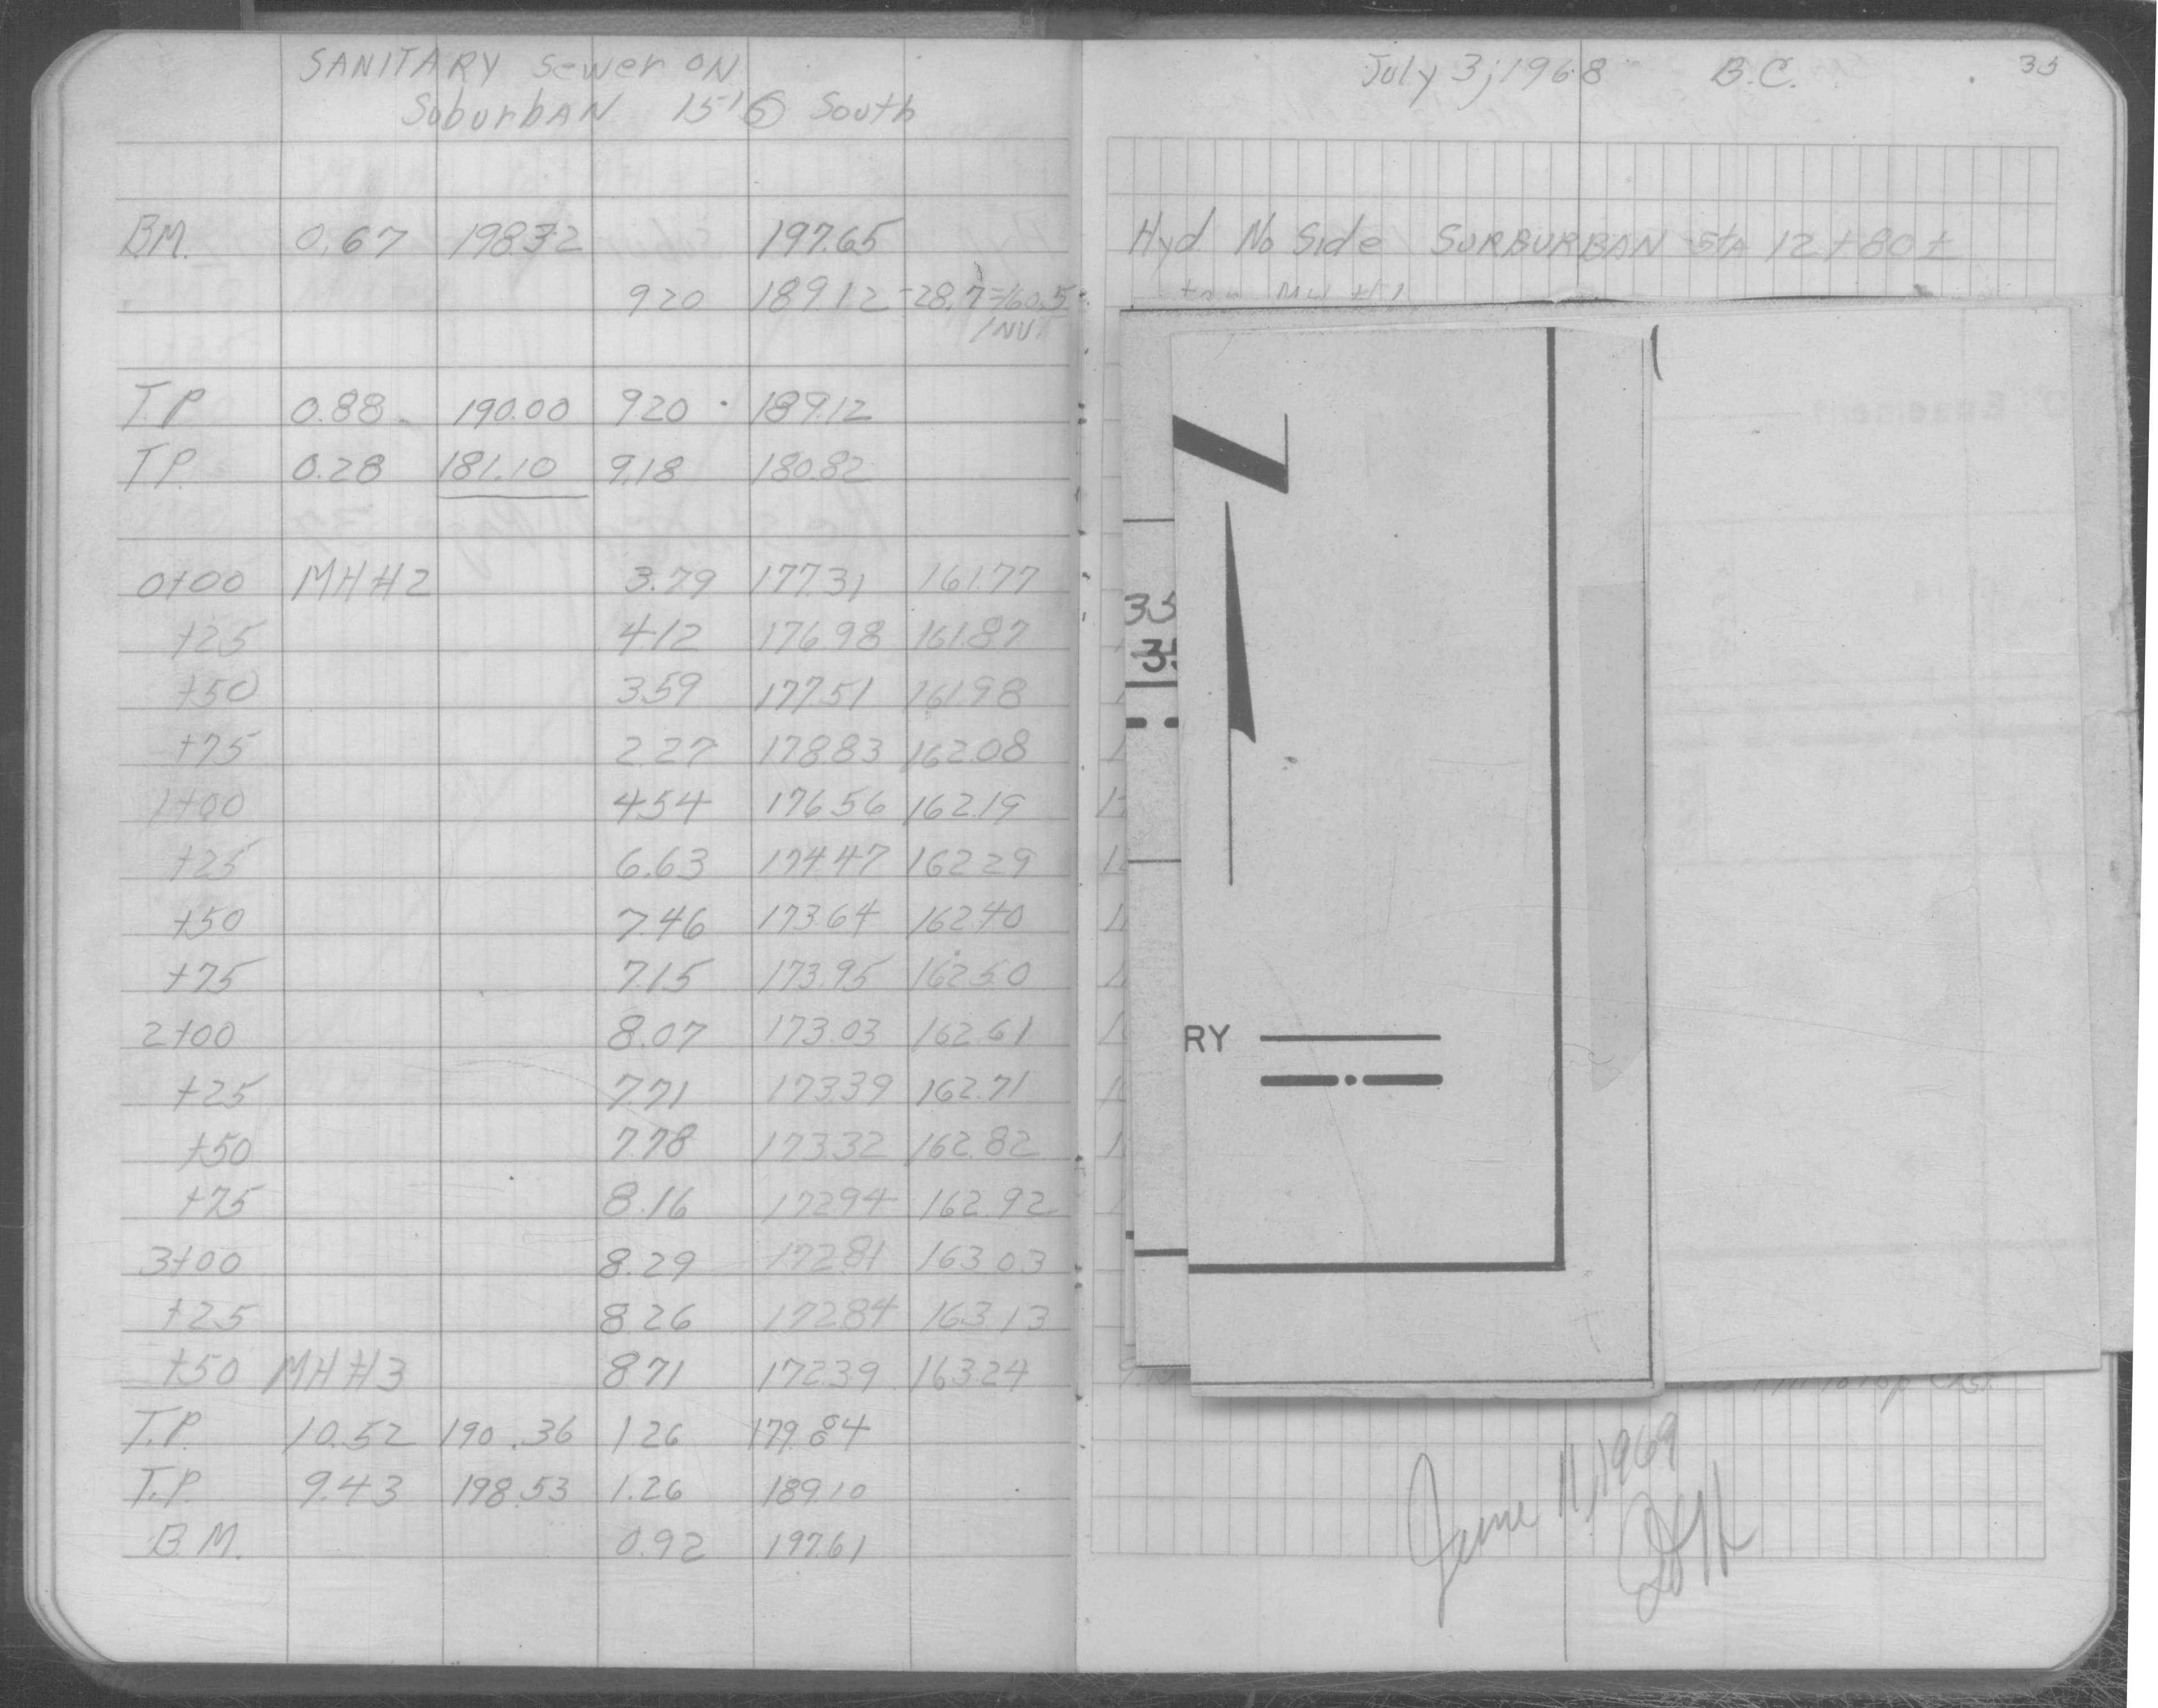 SANITARY Sewer ON
Suburban 15' South
B.M. 0.67 198.32 197.65
9.20 189.12 -28.7=160.5
INV.
T.P. 0.88 190.00 9.20 189.12
T.P. 0.28 181.10 9.18 180.82
0+00 MH #2 3.79 177.31 161.77
+25 4.12 176.98 161.87
+50 3.59 177.51 161.98
+75 2.27 178.83 162.08
1+00 4.54 176.56 162.19
+25 6.63 174.47 162.29
+50 7.46 173.64 162.40
+75 7.15 173.95 162.50
2+00 8.07 173.03 162.61
+25 7.71 173.39 162.71
+50 7.78 173.32 162.82
+75 8.16 172.94 162.92
3+00 8.29 172.81 163.03
+25 8.26 172.84 163.13
+50 MH #3 8.71 172.39 163.24
T.P. 10.52 190.36 1.26 179.84
T.P. 9.43 198.53 1.26 189.10
B.M. 0.92 197.61
July 3, 1968 B.C. 35
Hyd No Side SURBURBAN STA 12+80±
top MH #1
35
RY
top
June 11, 1969